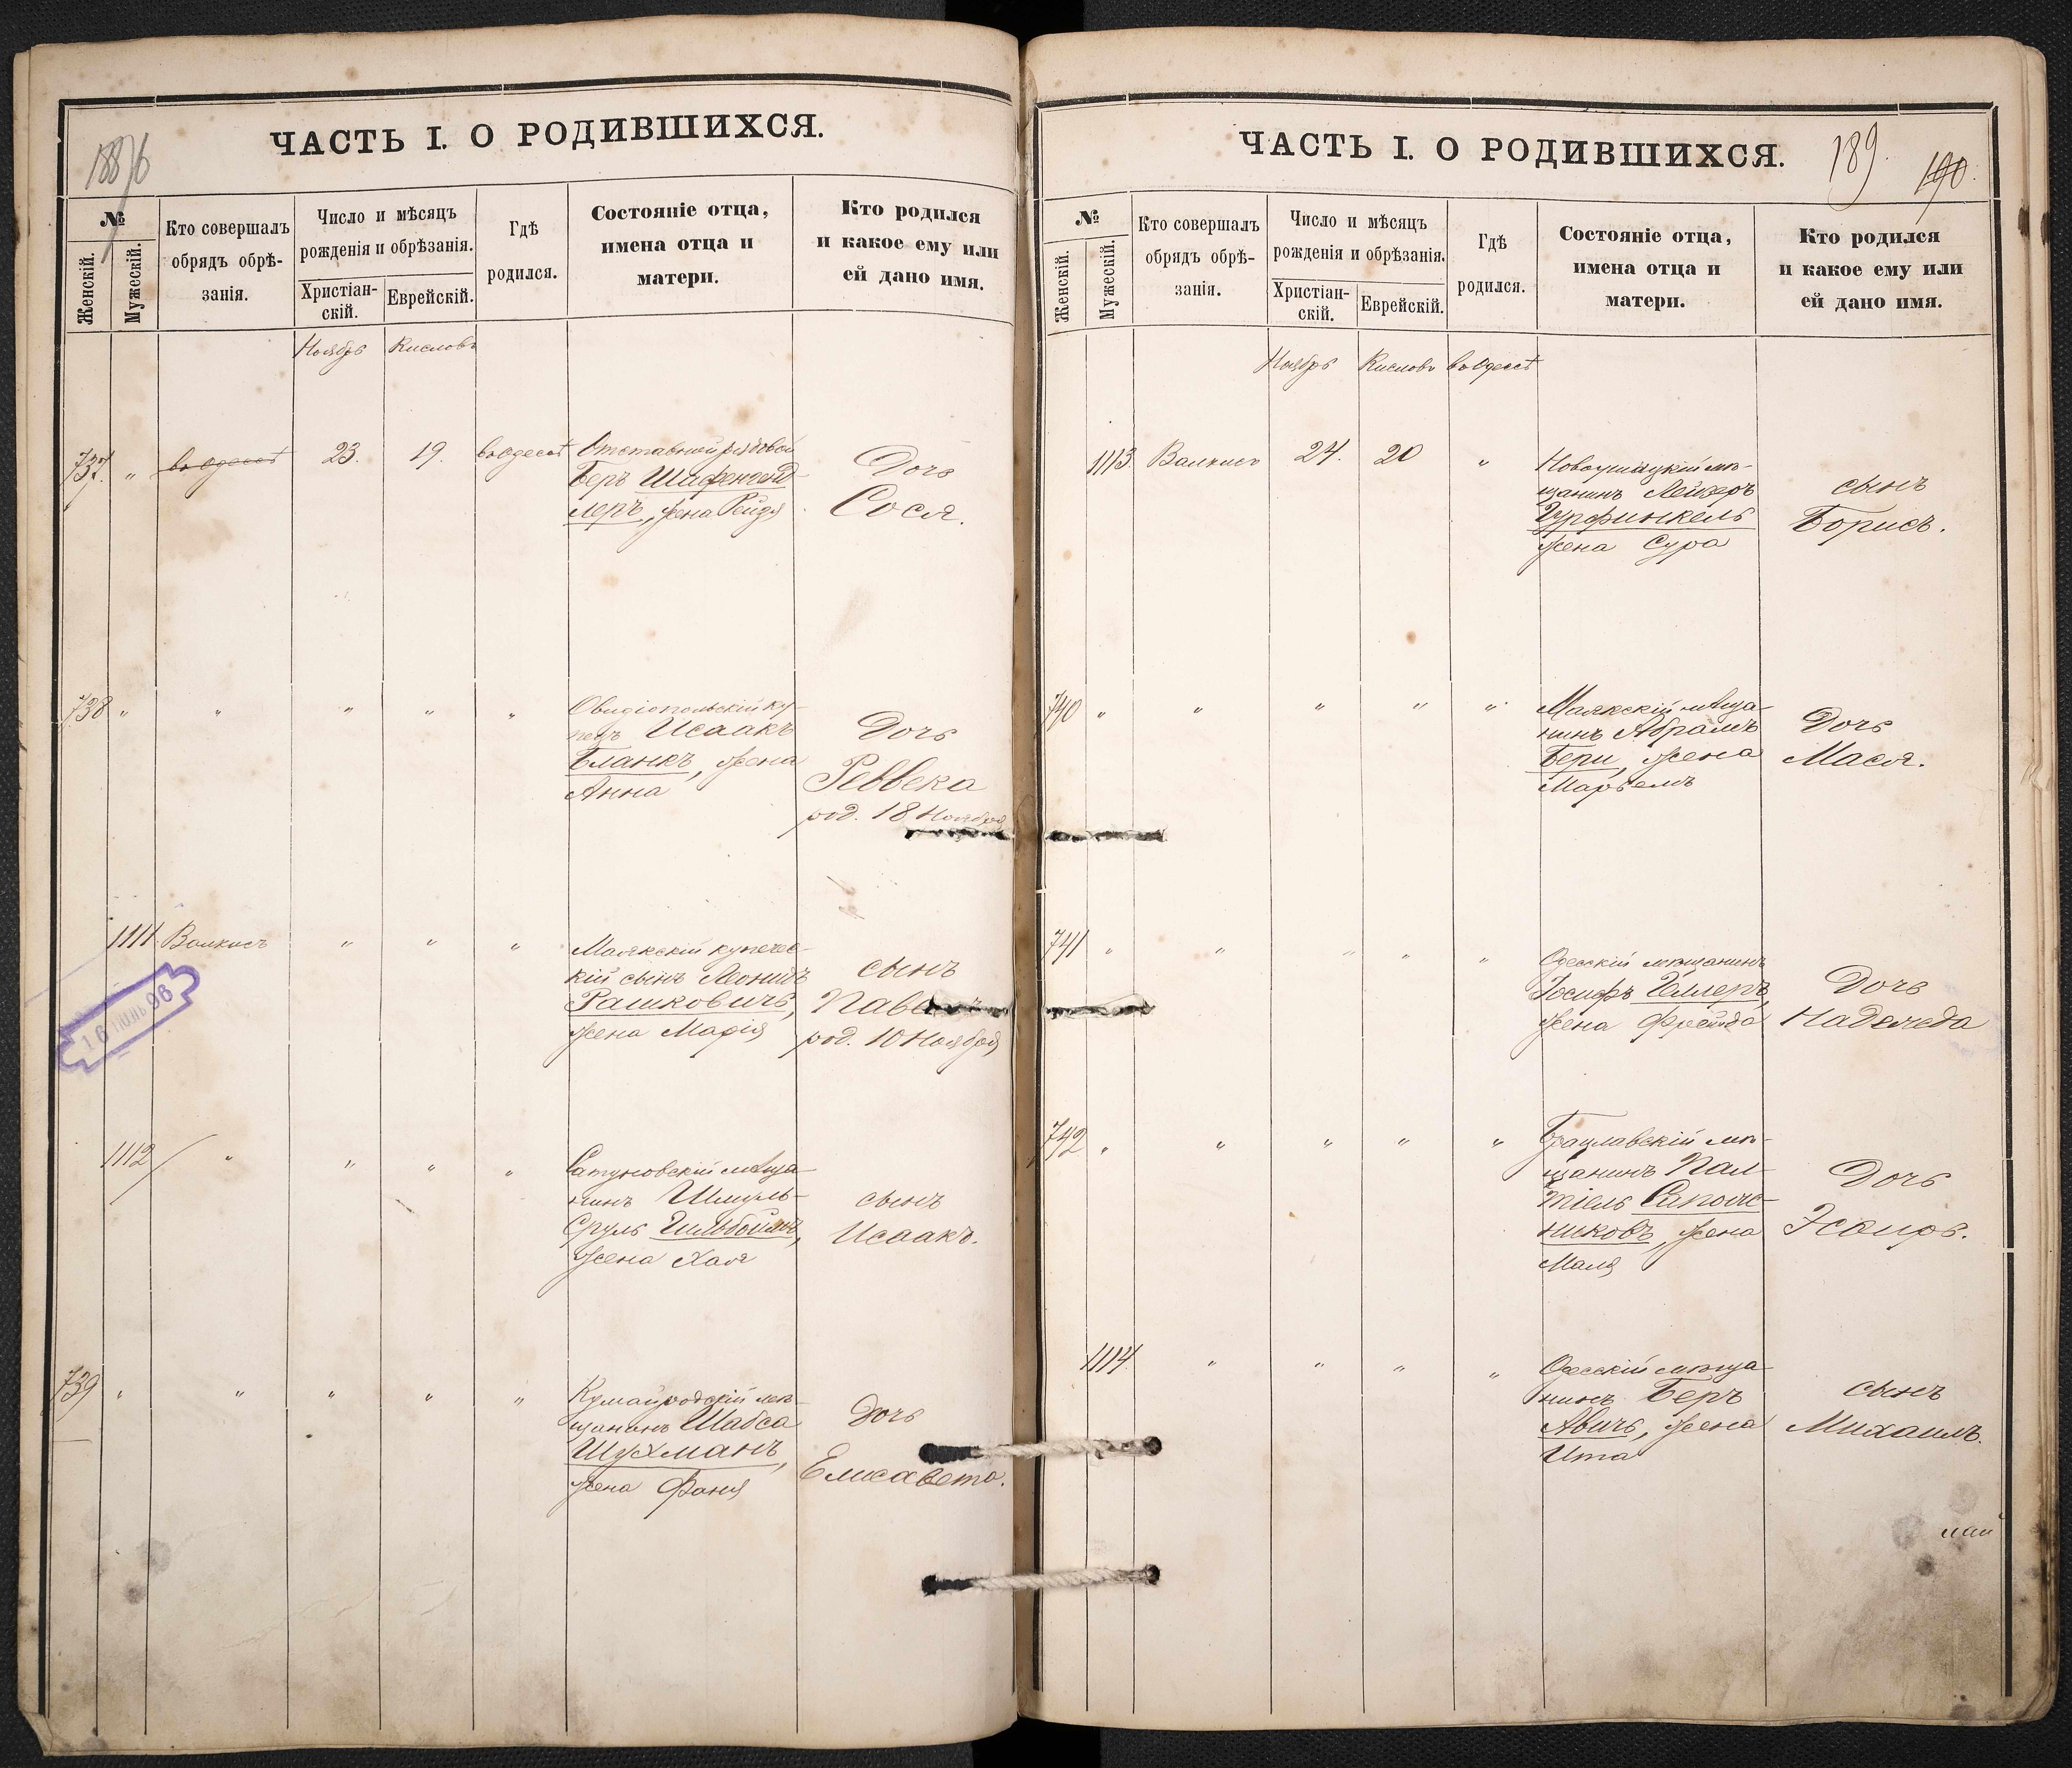 ЧАСТЬ I. О РОДИВШИХСЯ.
№
Женскій.
Мужескій.
Кто совершалъ
обрядъ обрѣ-
занія.
Число и мѣсяцъ
рожденія и обрѣзанія.
Христіан-
скій.
Еврейскій.
Гдѣ
родился.
Состояніе отца,
имена отца и
матери.
Кто родился
и какое ему или
ей дано имя.
Ноябрь Кислевъ
737. " въ Одессѣ 23. 19. въ Одессѣ
Отставной рядовой
Беръ Шафенгенд-
леръ, жена Рейзя
Дочь
Сося.
738 " " " " "
Овидіопольскій ку-
пецъ Исаакъ
Бланкъ, жена
Анна
Дочь
Реввека
род. 18 Ноября
1111 " " "
Маякскій купечес-
кій сынъ Леонидъ
Рашковичъ,
жена Марія
сынъ
род. 10 Ноября
16 ІЮНЬ 96
1112 " " " "
мѣща-
нинъ Шмуль-
Сруль
жена Хая
сынъ
Исаакъ.
739 " " " " "
мѣ-
щанинъ Шабса
Шухманъ,
жена Фаня
Дочь
Елисавета.
ЧАСТЬ I. О РОДИВШИХСЯ.
189.
190.
№
Женскій.
Мужескій.
Кто совершалъ
обрядъ обрѣ-
занія.
Число и мѣсяцъ
рожденія и обрѣзанія.
Христіан-
скій.
Еврейскій.
Гдѣ
родился.
Состояніе отца,
имена отца и
матери.
Кто родился
и какое ему или
ей дано имя.
Ноябрь Кислевъ въ Одессѣ
1113. 24. 20 "
Новоушицкій мѣ-
щанинъ Лейзеръ
Гурфинкель
жена Сура
сынъ
Борисъ.
740 " " " " "
Маякскій мѣща-
нинъ Абрамъ
жена
Дочь
Мася.
741 " " " " "
Одесскій мѣщанинъ
Іосифъ Геллеръ,
жена Фрейда
Дочь
Надежда
742 " " " " "
Брацлавскій мѣ-
щанинъ Пал-
тіель Сапож-
никовъ, жена
Маля
Дочь
Эсѳирь.
1114 " " " "
Одесскій мѣща-
нинъ Беръ
Авичъ, жена
Ита
сынъ
Михаилъ.